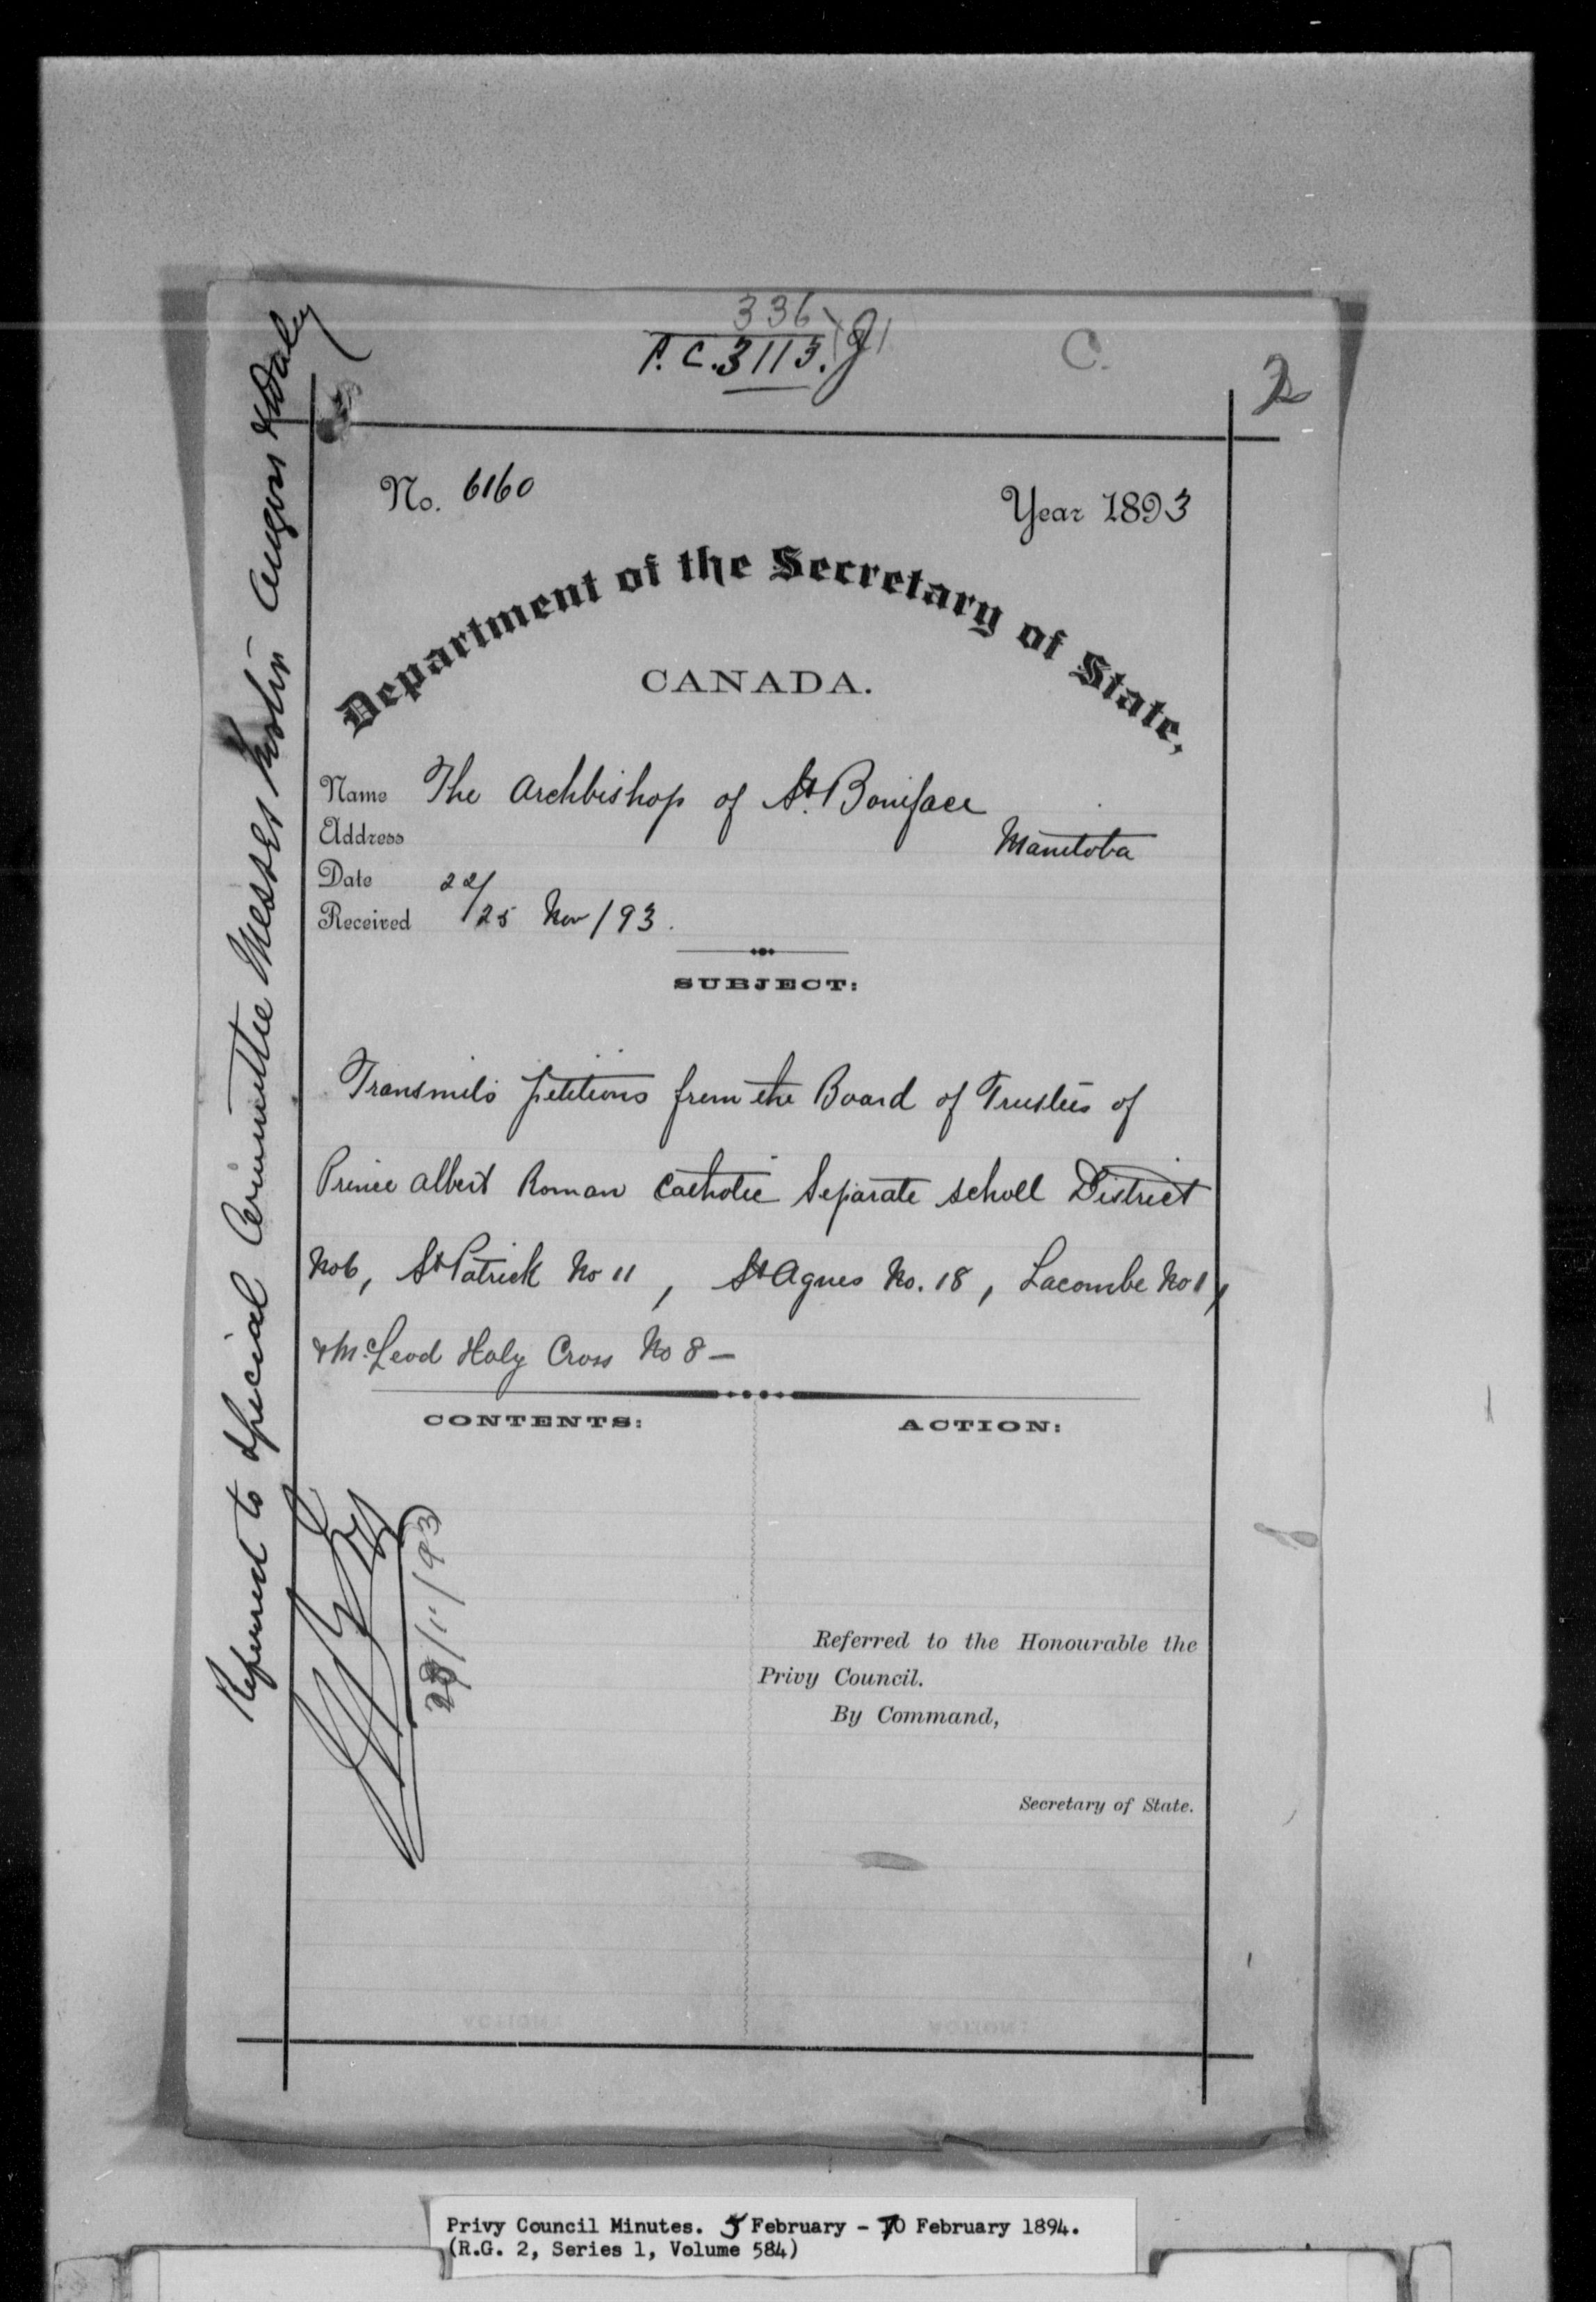 336
P.C. 3113. J
C.
2
No. 6160
Year 1893
Department of the Secretary of State,
CANADA.
Name The Archbishop of St. Boniface
Address Manitoba
Date 22/
Received /25 Nov/93.
SUBJECT:
Transmits petitions from the Board of Trustees of
Prince Albert Roman Catholic Separate School District
No6, St Patrick No 11, St Agnes No. 18, Lacombe No 1,
& McLeod Holy Cross No 8 —
CONTENTS:
ACTION:
28/11/93
Referred to the Honourable the
Privy Council.
By Command,
Secretary of State.
Referred to Special Committee Messrs Angers & Daly
Privy Council Minutes. 5 February - 10 February 1894.
(R.G. 2, Series 1, Volume 584)